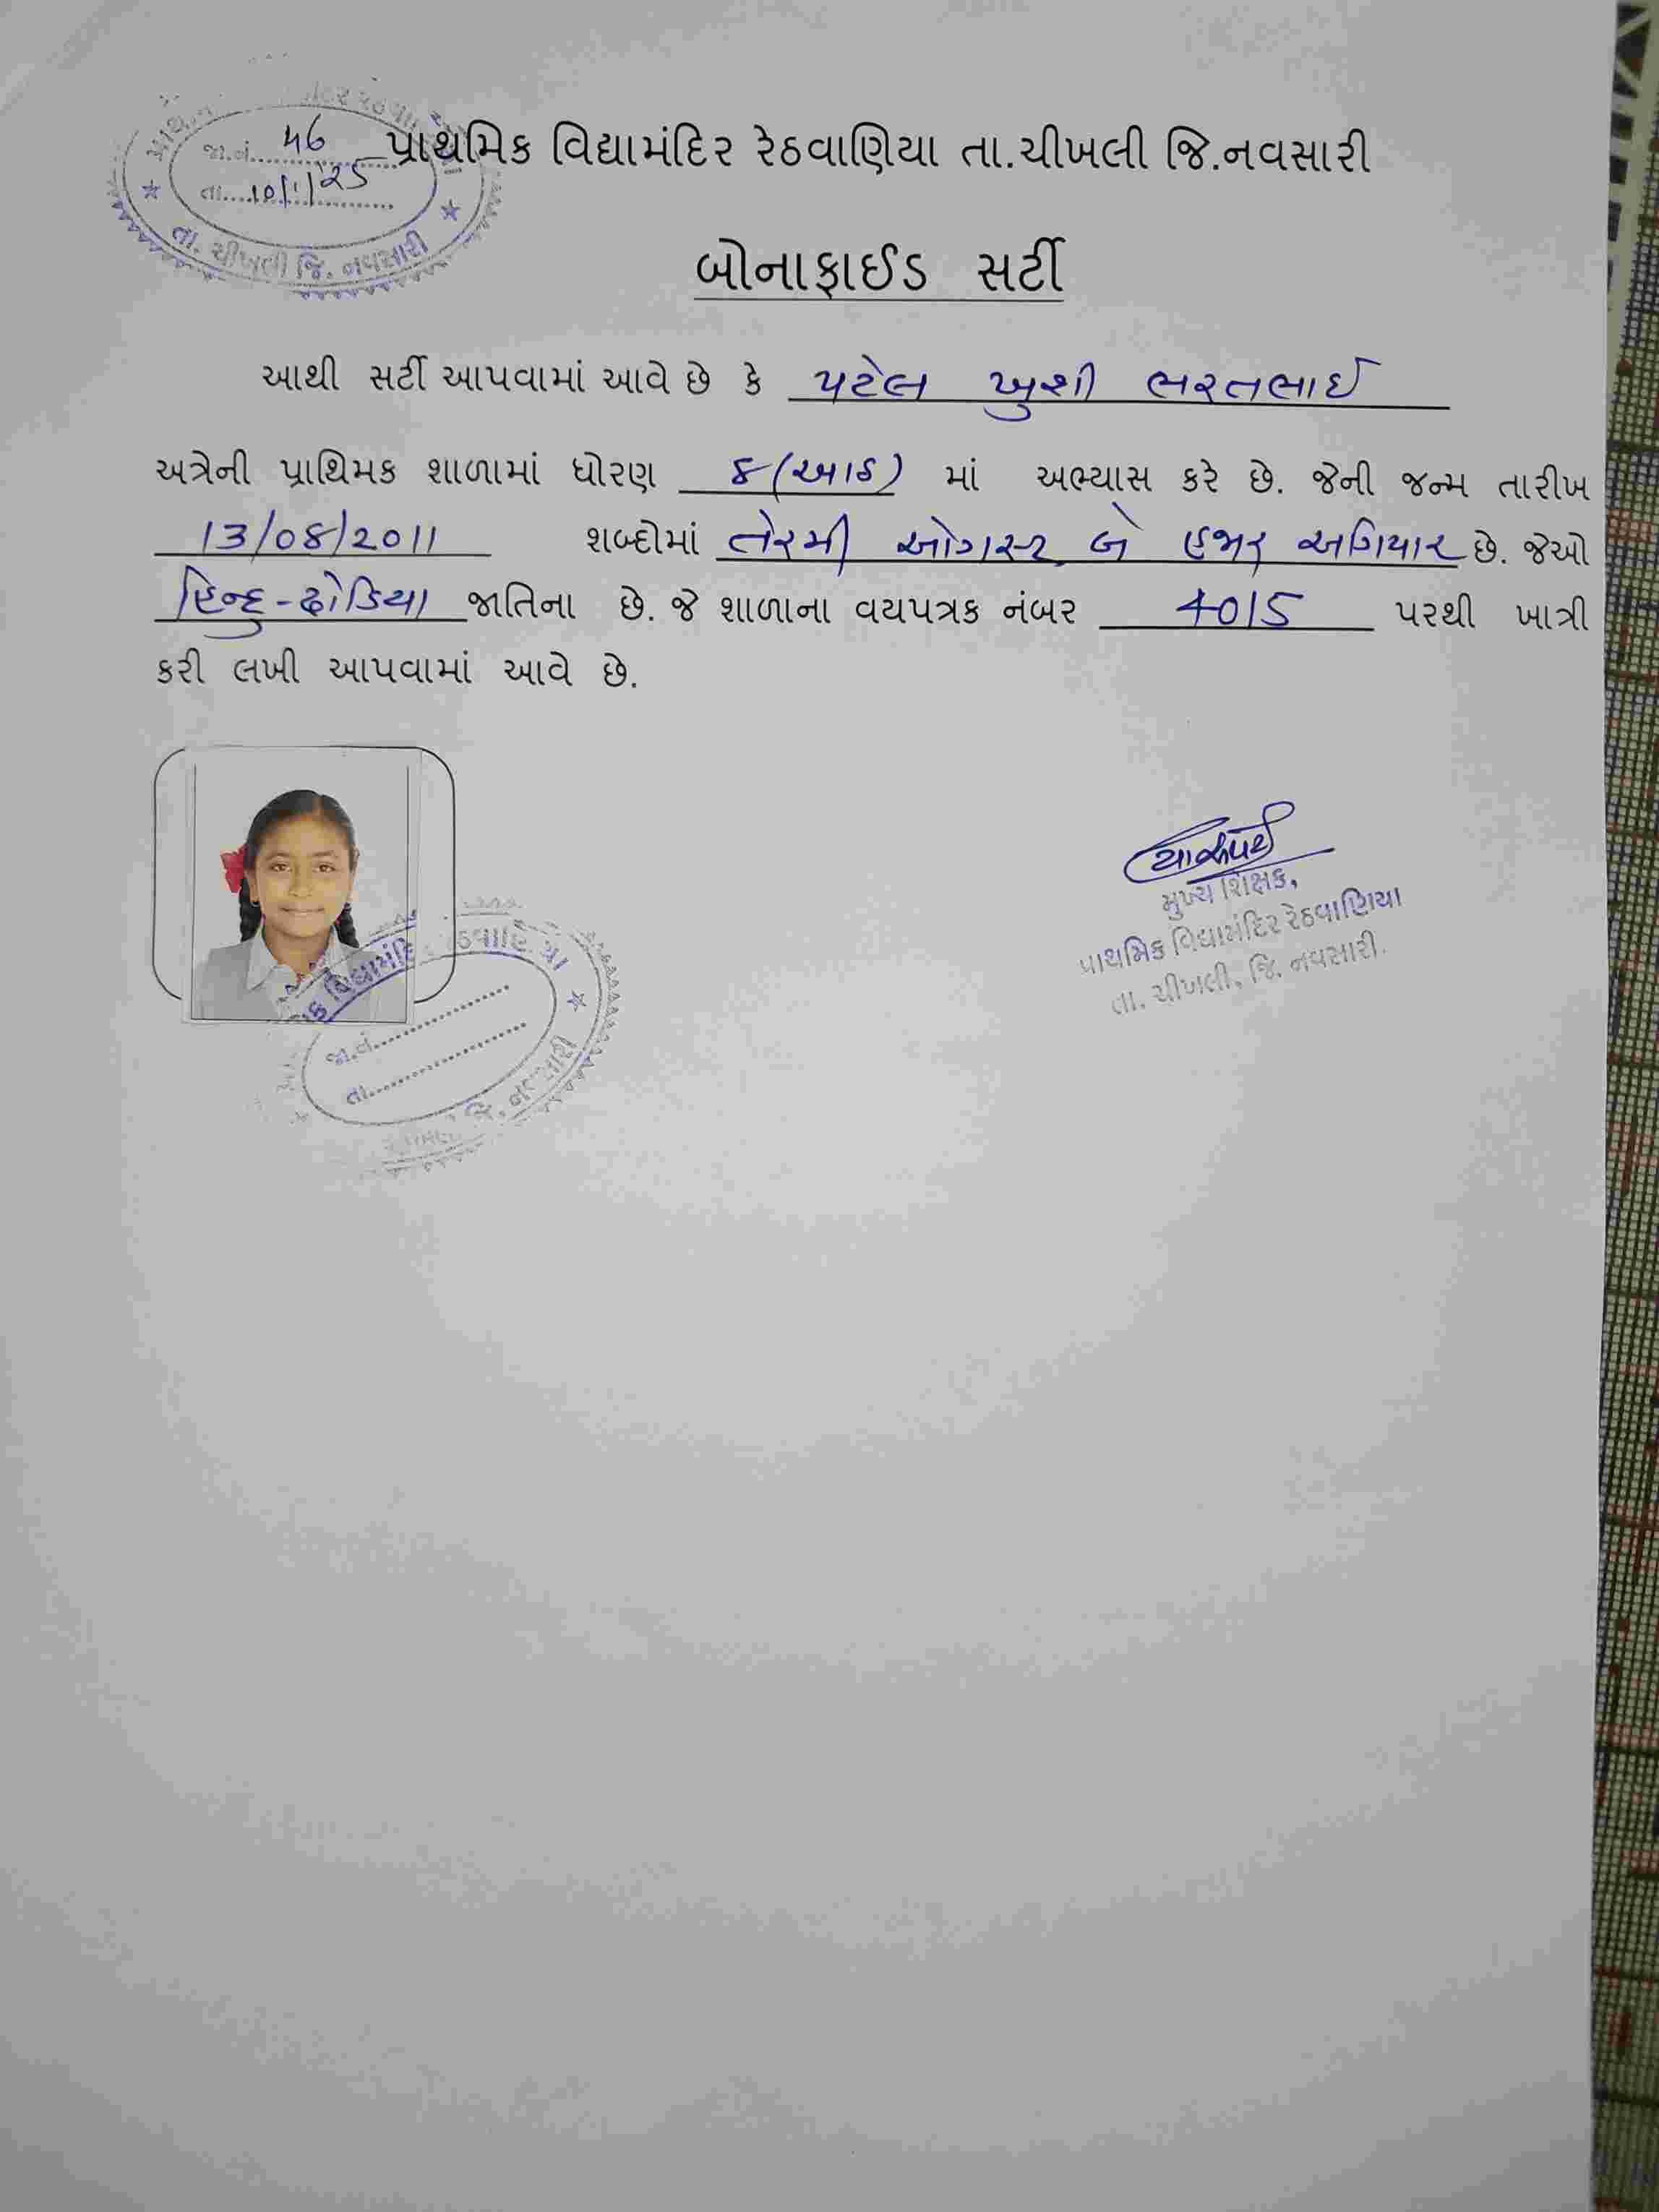 જા.નં. 46
તા. 10/1/25
તા. ચીખલી જિ. નવસારી
પ્રાથમિક વિદ્યામંદિર રેઠવાણિયા તા.ચીખલી જિ.નવસારી
બોનાફાઈડ સર્ટી
આથી સર્ટી આપવામાં આવે છે કે પટેલ ખુશી ભરતભાઈ
અત્રેની પ્રાથિમક શાળામાં ધોરણ ૮ (આઠ) માં અભ્યાસ કરે છે. જેની જન્મ તારીખ
13/08/2011 શબ્દોમાં તેરમી ઓગસ્ટ બે હજાર અગિયાર છે. જેઓ
હિન્દુ-ઢોડિયા જાતિના છે. જે શાળાના વયપત્રક નંબર 4015 પરથી ખાત્રી
કરી લખી આપવામાં આવે છે.
મુખ્ય શિક્ષક,
પ્રાથમિક વિદ્યામંદિર રેઠવાણિયા
તા. ચીખલી, જિ. નવસારી.
જા.નં.
તા.